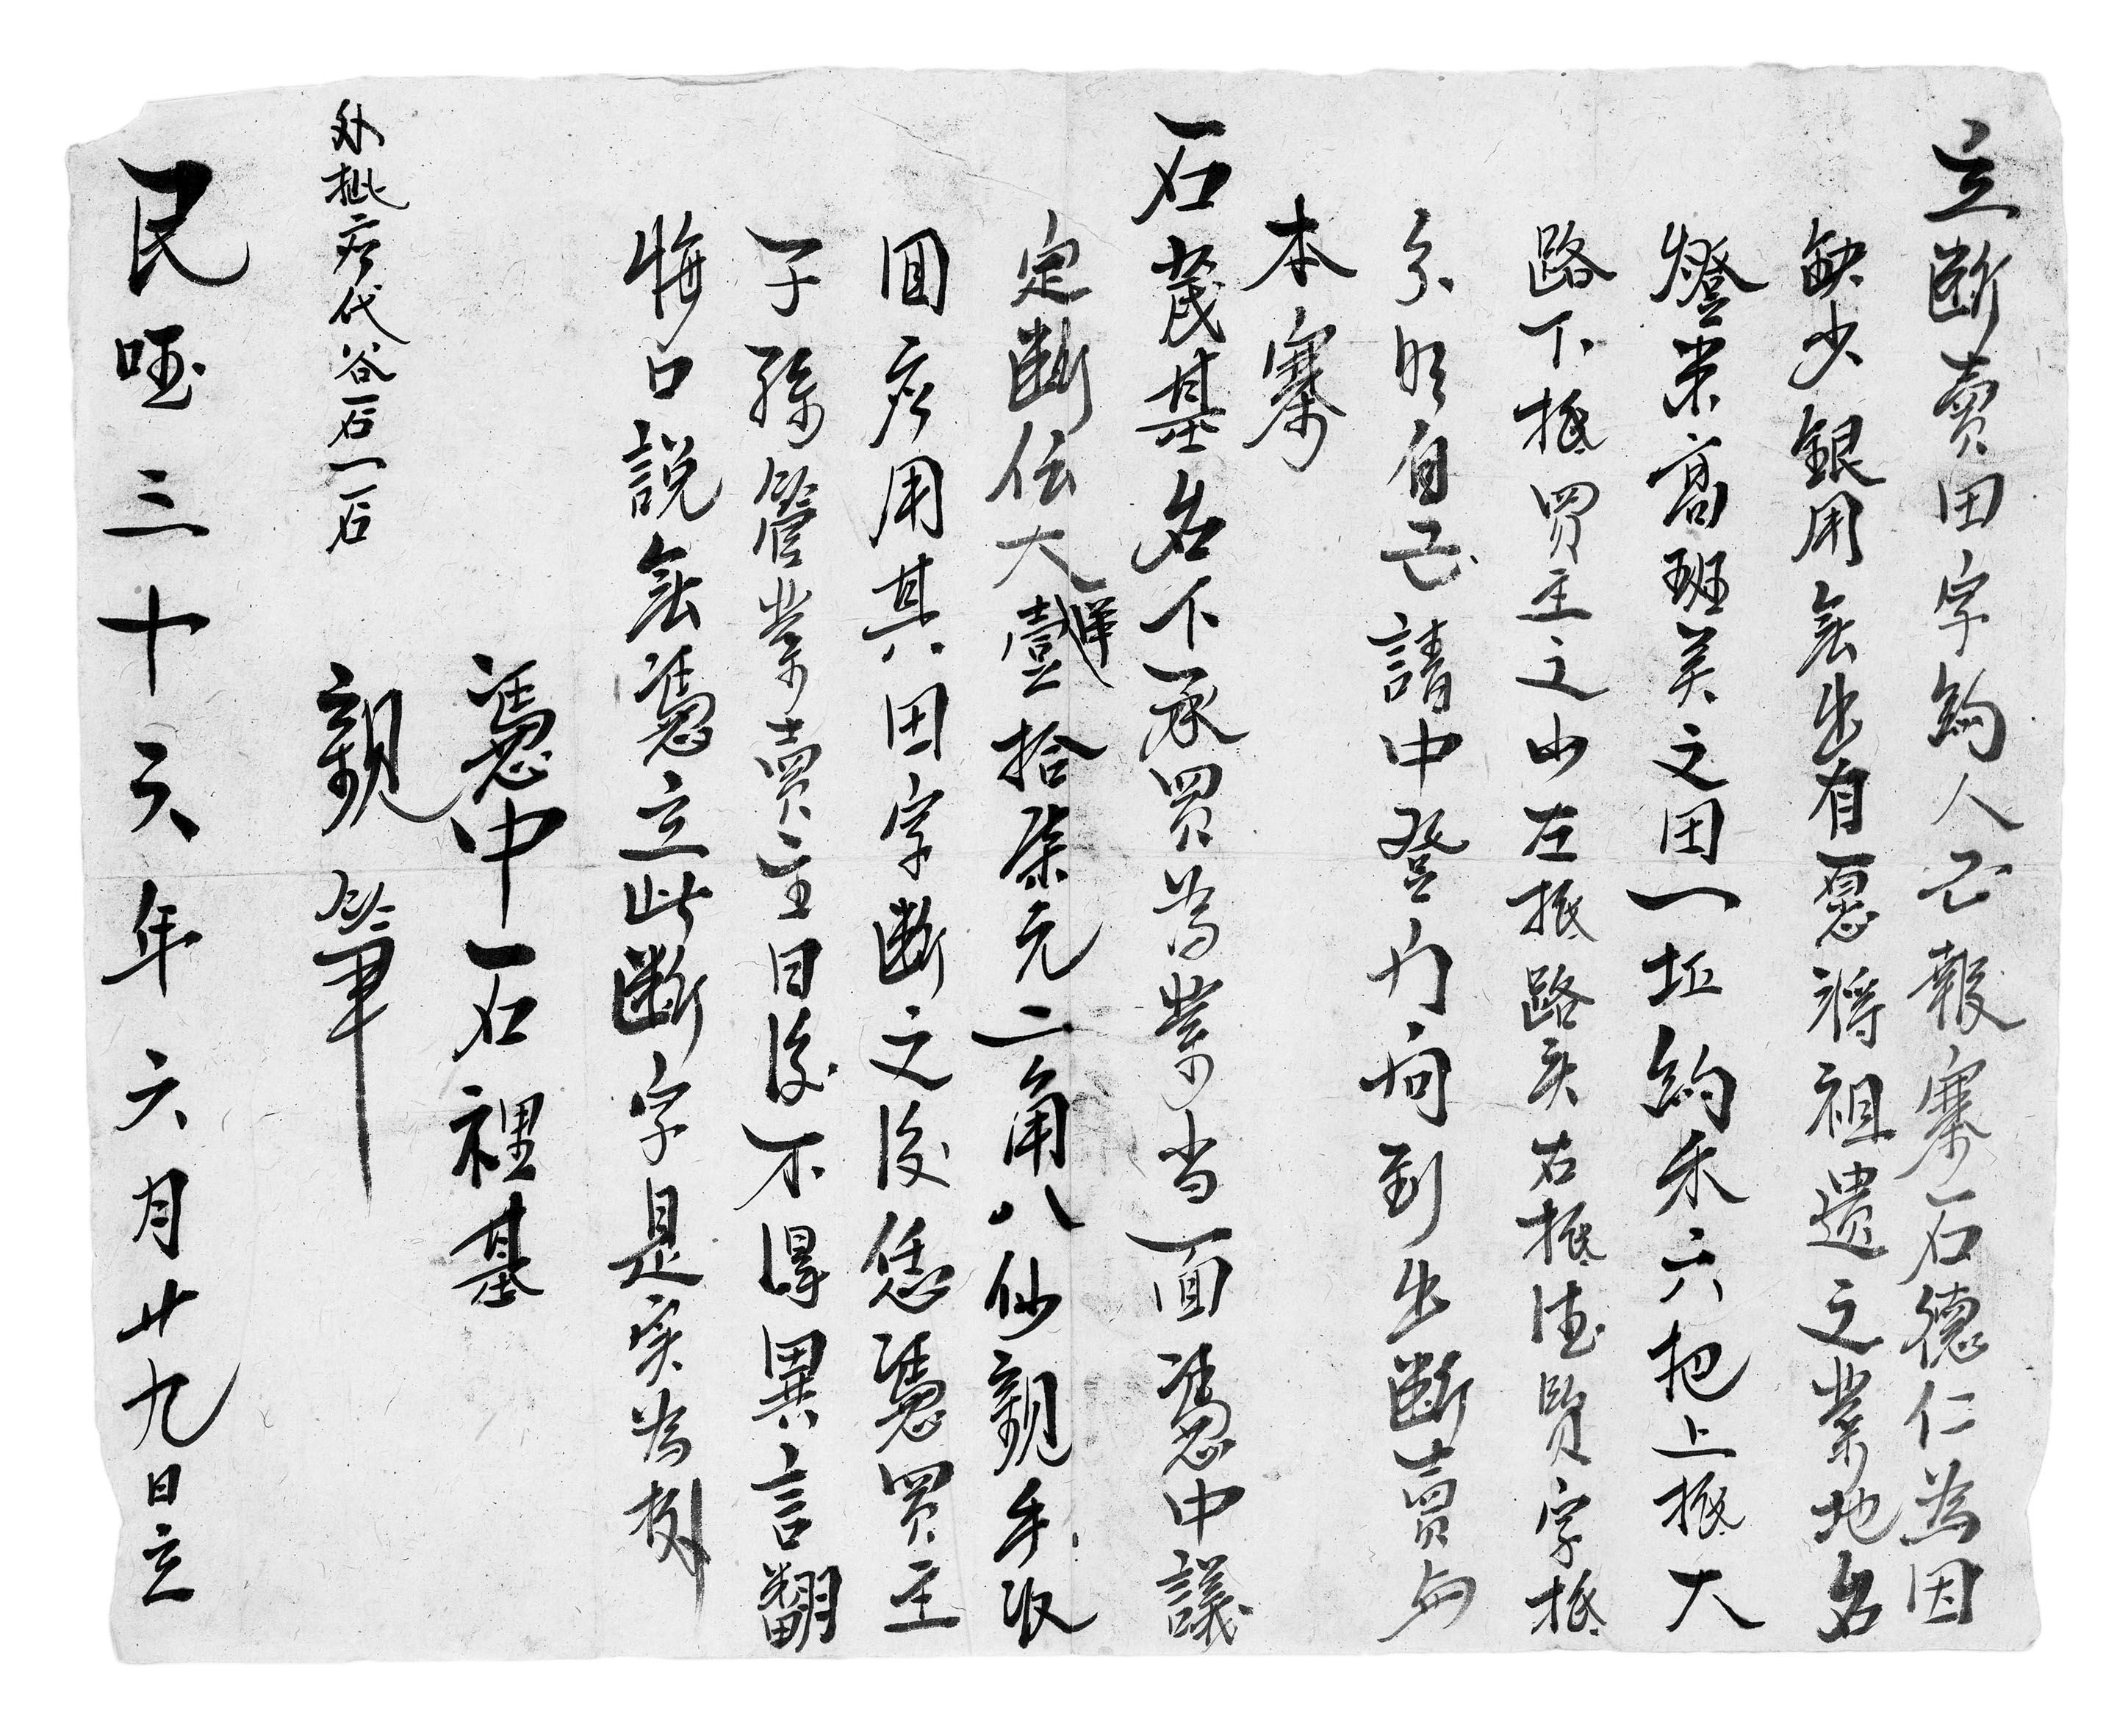 立断賣田字約人正報寨石德仁為因
缺少銀用無出自愿將祖遺之業地名
燈米高班美之田一坵約禾六把上抵大
路下抵買主之山左抵路夹右抵德賢字抵
分明自己請中登门问到出断賣与
本寨
石茂基名下承買為業当面憑中議
定断價大洋壹拾柒元二角八仙親手收
回應用其田字断之後恁憑買主
子孫管業賣主日後不得異言翻
悔口說無憑立此断字是实為據
憑中石裡基
親筆
外批應代谷石一石
民國三十六年六月廿九日立